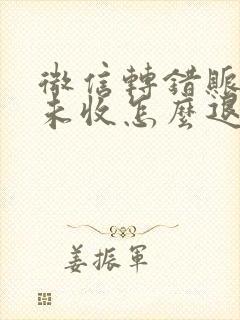 微信轉錯賬
未收怎麼退
姜振軍